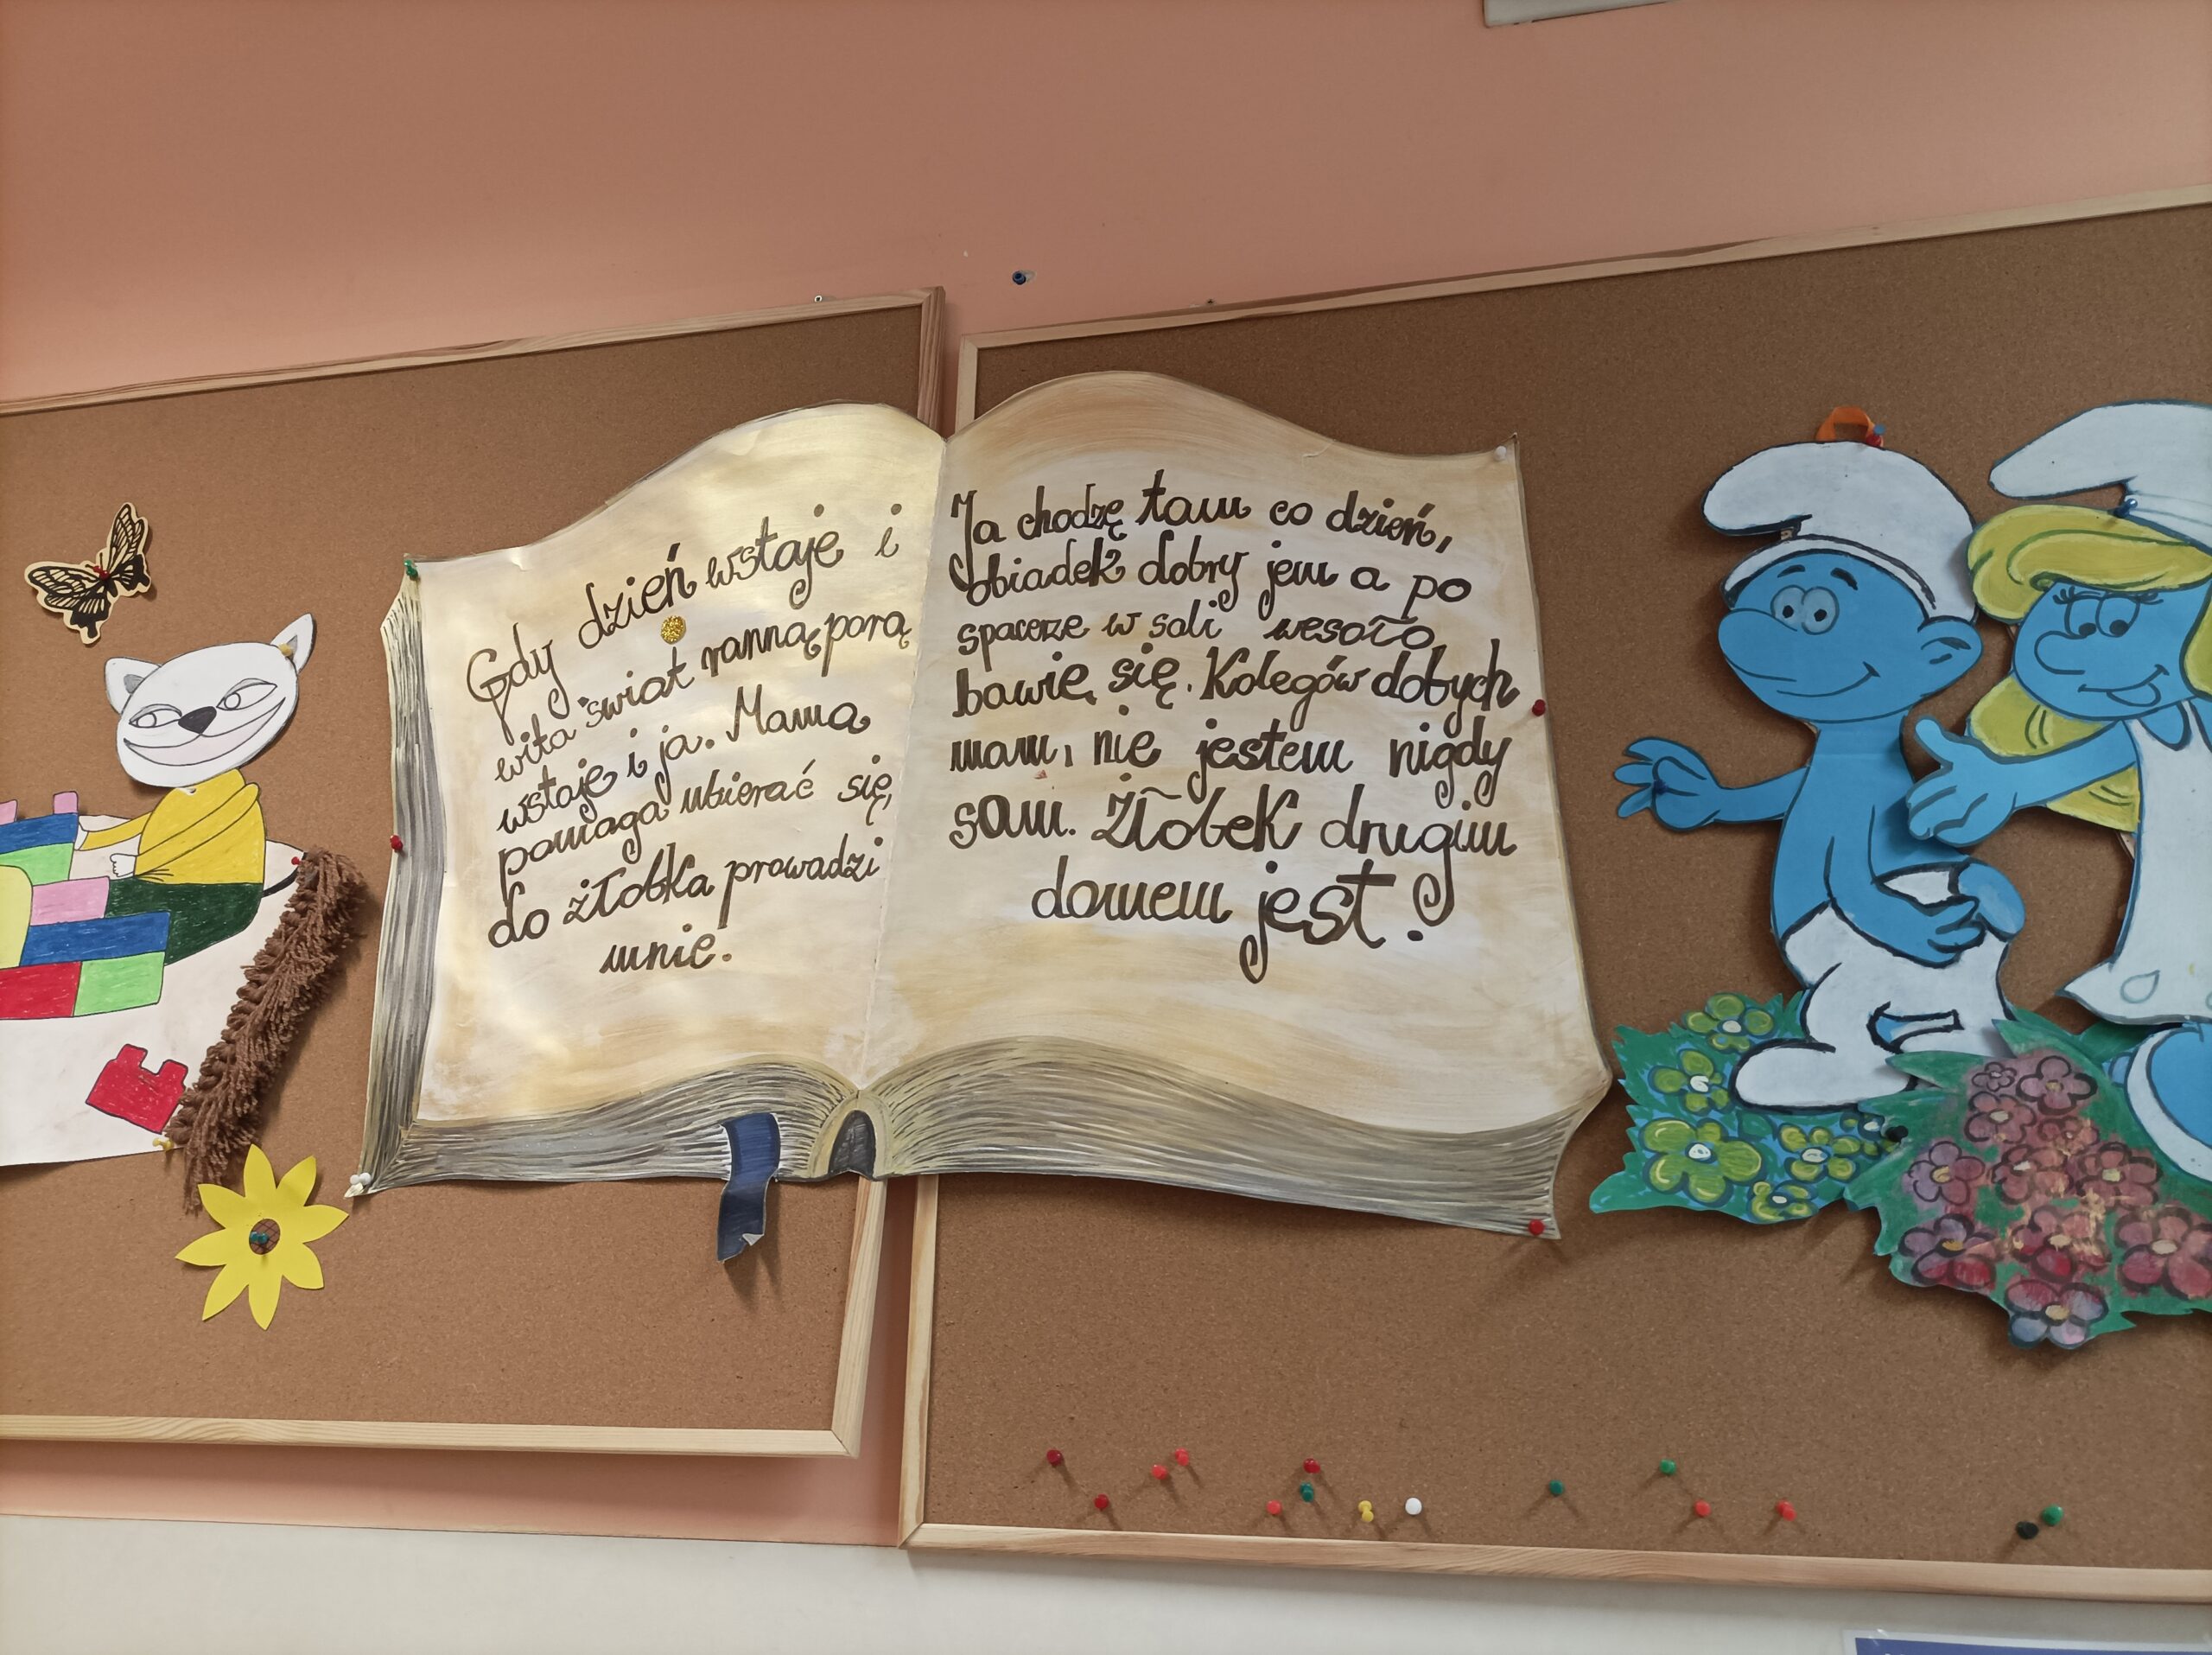 Gdy dzień wstaje i
wita świat ranną porą
wstaje i ja. Mama
pomaga ubierać się,
do żłobka prowadzi
mnie.
Ja chodzę tam co dzień,
obiadek dobry jem a po
spacerze w sali wesoło
bawię się. Kolegów dobych
mam, nie jestem nigdy
sam. Żłobek drugim
domem jest!